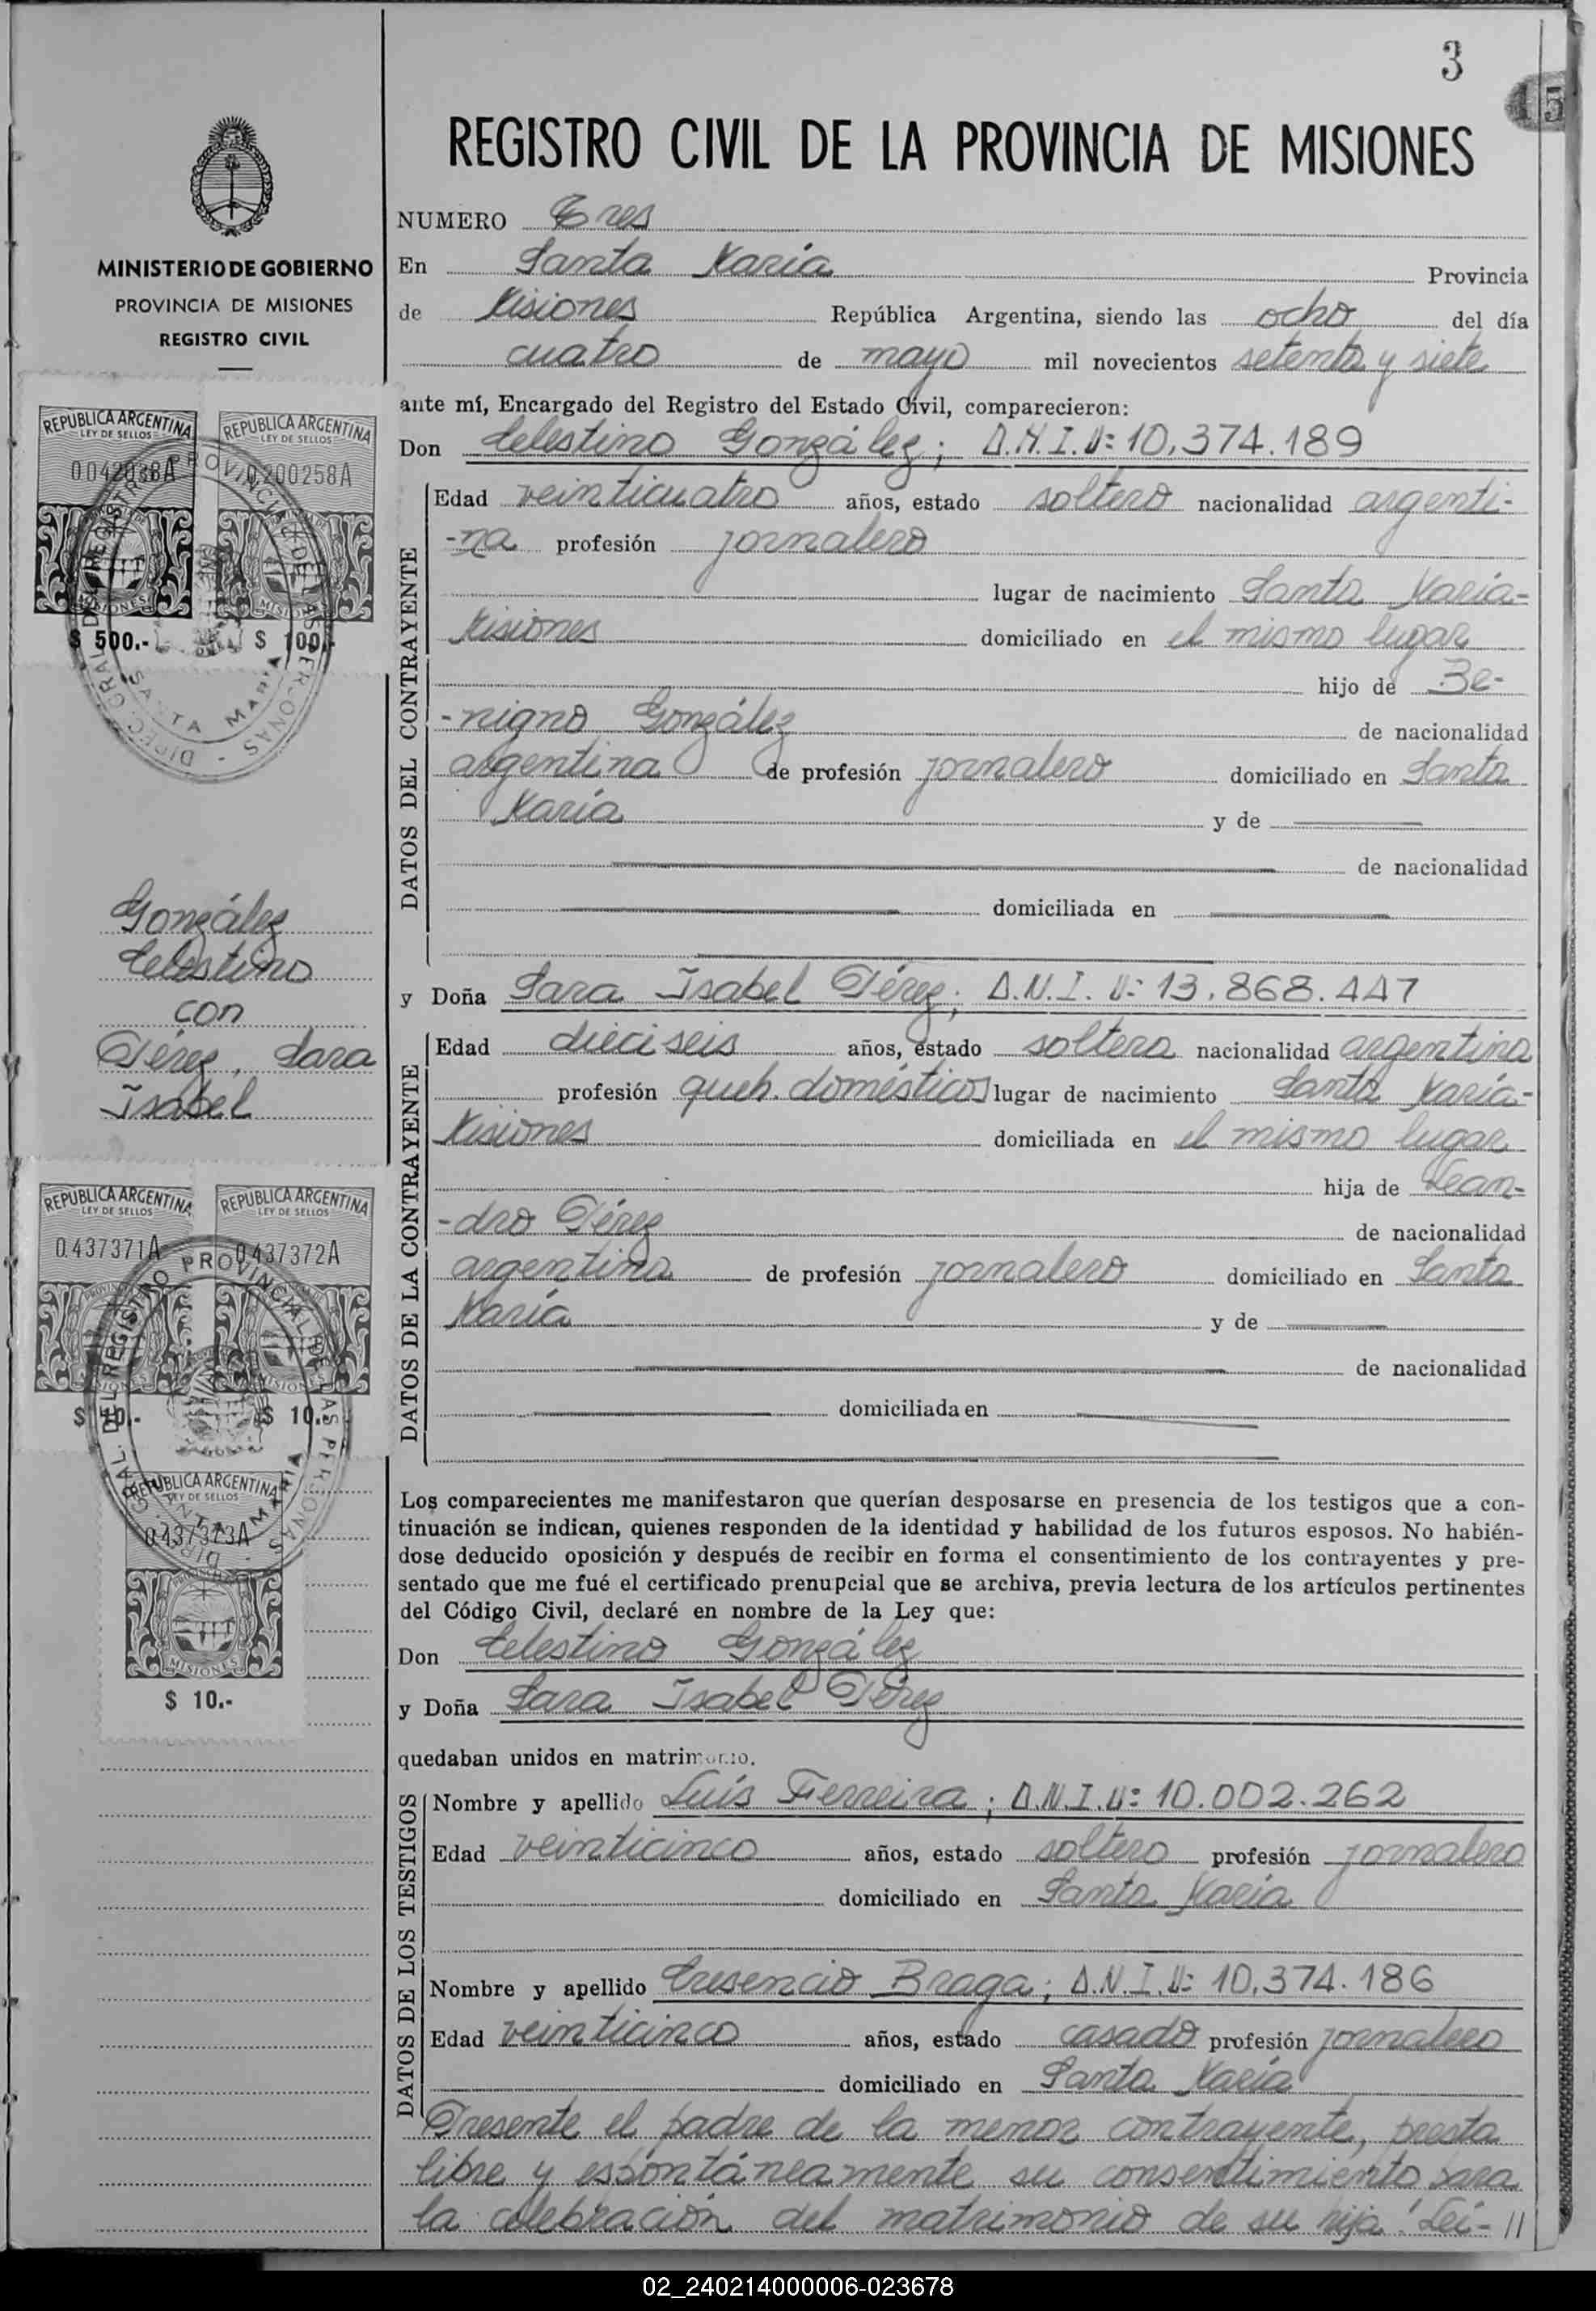 3
15
REGISTRO CIVIL DE LA PROVINCIA DE MISIONES
MINISTERIO DE GOBIERNO
PROVINCIA DE MISIONES
REGISTRO CIVIL
NUMERO Tres
En Santa María Provincia
de Misiones República Argentina, siendo las ocho del día
cuatro de mayo mil novecientos setenta y siete
ante mí, Encargado del Registro del Estado Civil, comparecieron:
Don Celestino González; D.N.I. N: 10.374.189
DATOS DEL CONTRAYENTE
Edad veinticuatro años, estado soltero nacionalidad argenti-
-na profesión jornalero
lugar de nacimiento Santa María-
Misiones domiciliado en el mismo lugar
hijo de Be-
-nigno González de nacionalidad
argentina de profesión jornalero domiciliado en Santa
María y de
de nacionalidad
domiciliada en
y Doña Sara Isabel Pérez; D.N.I. N: 13.868.447
DATOS DE LA CONTRAYENTE
Edad dieciseis años, estado soltera nacionalidad argentina
profesión queh. domésticos lugar de nacimiento Santa María-
Misiones domiciliada en el mismo lugar
hija de Lean-
-dro Pérez de nacionalidad
argentina de profesión jornalero domiciliado en Santa
María y de
de nacionalidad
domiciliada en
Los comparecientes me manifestaron que querían desposarse en presencia de los testigos que a con-
tinuación se indican, quienes responden de la identidad y habilidad de los futuros esposos. No habién-
dose deducido oposición y después de recibir en forma el consentimiento de los contrayentes y pre-
sentado que me fué el certificado prenupcial que se archiva, previa lectura de los artículos pertinentes
del Código Civil, declaré en nombre de la Ley que:
Don Celestino González
y Doña Sara Isabel Pérez
quedaban unidos en matrimonio.
DATOS DE LOS TESTIGOS
Nombre y apellido Luís Ferreira; D.N.I. N: 10.002.262
Edad veinticinco años, estado soltero profesión jornalero
domiciliado en Santa María
Nombre y apellido Cresencio Braga; D.N.I. N: 10.374.186
Edad veinticinco años, estado casado profesión jornalero
domiciliado en Santa María
Presente el padre de la menor contrayente, presta
libre y espontáneamente su consentimiento para
la celebración del matrimonio de su hija. Leí- //
REPUBLICA ARGENTINA
LEY DE SELLOS
0.042038A
MISIONES
$ 500.-
REPUBLICA ARGENTINA
LEY DE SELLOS
0.200258A
MISIONES
$ 100.-
DIREC. GRAL. DEL REGISTRO PROVINCIAL DE LAS PERSONAS
SANTA MARIA
González
Celestino
con
Pérez, Sara
Isabel
REPUBLICA ARGENTINA
LEY DE SELLOS
0.437371A
MISIONES
$ 10.-
REPUBLICA ARGENTINA
LEY DE SELLOS
0.437372A
MISIONES
$ 10.-
DIREC. GRAL. DEL REGISTRO PROVINCIAL DE LAS PERSONAS
SANTA MARIA
REPUBLICA ARGENTINA
LEY DE SELLOS
0.437373A
MISIONES
$ 10.-
02_240214000006-023678